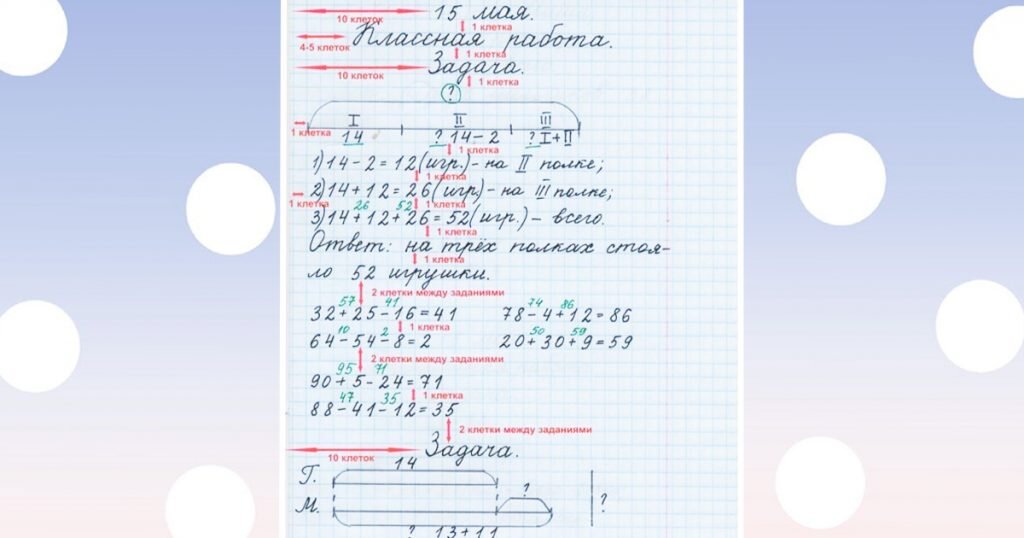 10 клеток 15 мая.
1 клетка
4-5 клеток Классная работа.
1 клетка
10 клеток Задача.
1 клетка
?
I II III
1 клетка 14 ? 14-2 ? I+II
1 клетка
1) 14-2=12(игр.)- на II полке;
1 клетка
2) 14+12=26(игр.)- на III полке;
1 клетка 26 52 1 клетка
3) 14+12+26=52(игр.)- всего.
1 клетка
Ответ: на трёх полках стоя-
1 клетка
ло 52 игрушки.
2 клетки между заданиями
57 41 74 86
32+25-16=41 78-4+12=86
1 клетка
10 2 50 59
64-54-8=2 20+30+9=59
2 клетки между заданиями
95 71
90+5-24=71
1 клетка
47 35
88-41-12=35
2 клетки между заданиями
10 клеток Задача.
14
Г.
?
М. ?
? 13+11